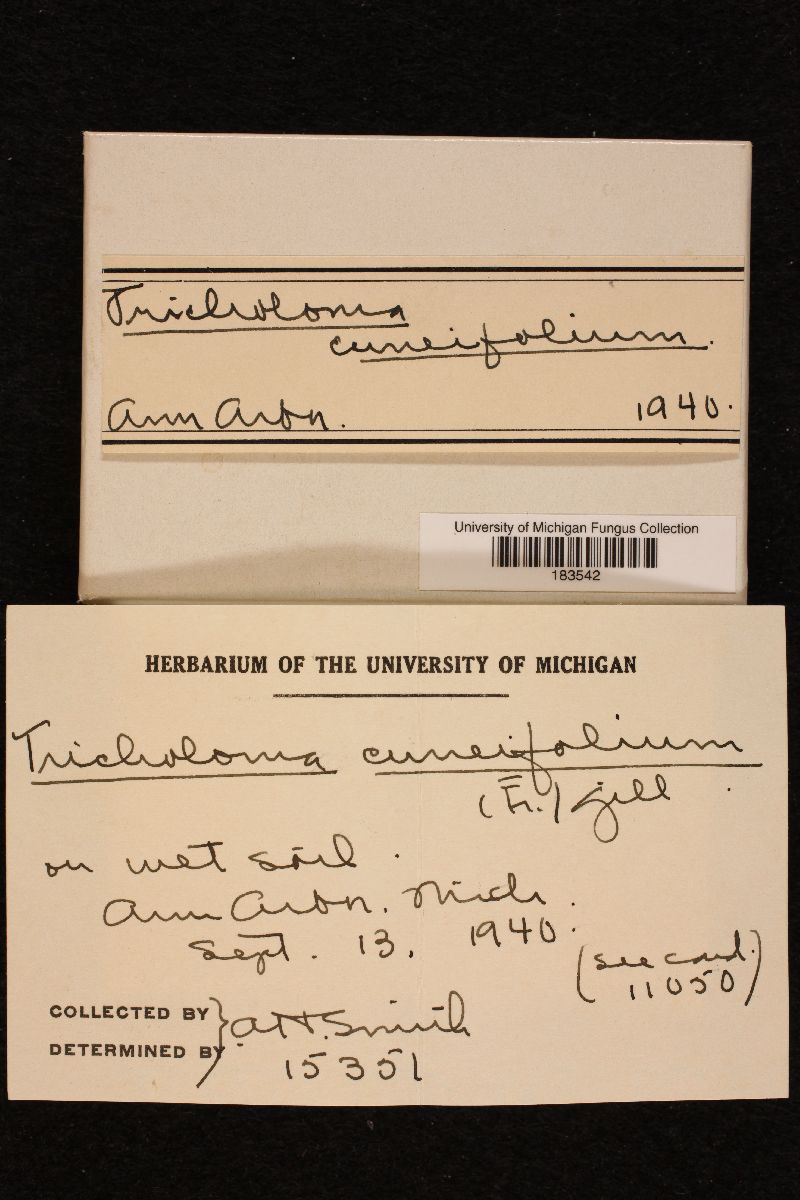 Tricholoma
cuneifolium.
Ann Arbor.
1940.
University of Michigan Fungus Collection
183542
HERBARIUM OF THE UNIVERSITY OF MICHIGAN
Tricholoma cuneifolium
(Fr.) Gill
on wet soil.
Ann Arbor, Mich.
Sept. 13, 1940.
(see card.
11050)
COLLECTED BY
DETERMINED BY
A.H. Smith
15351